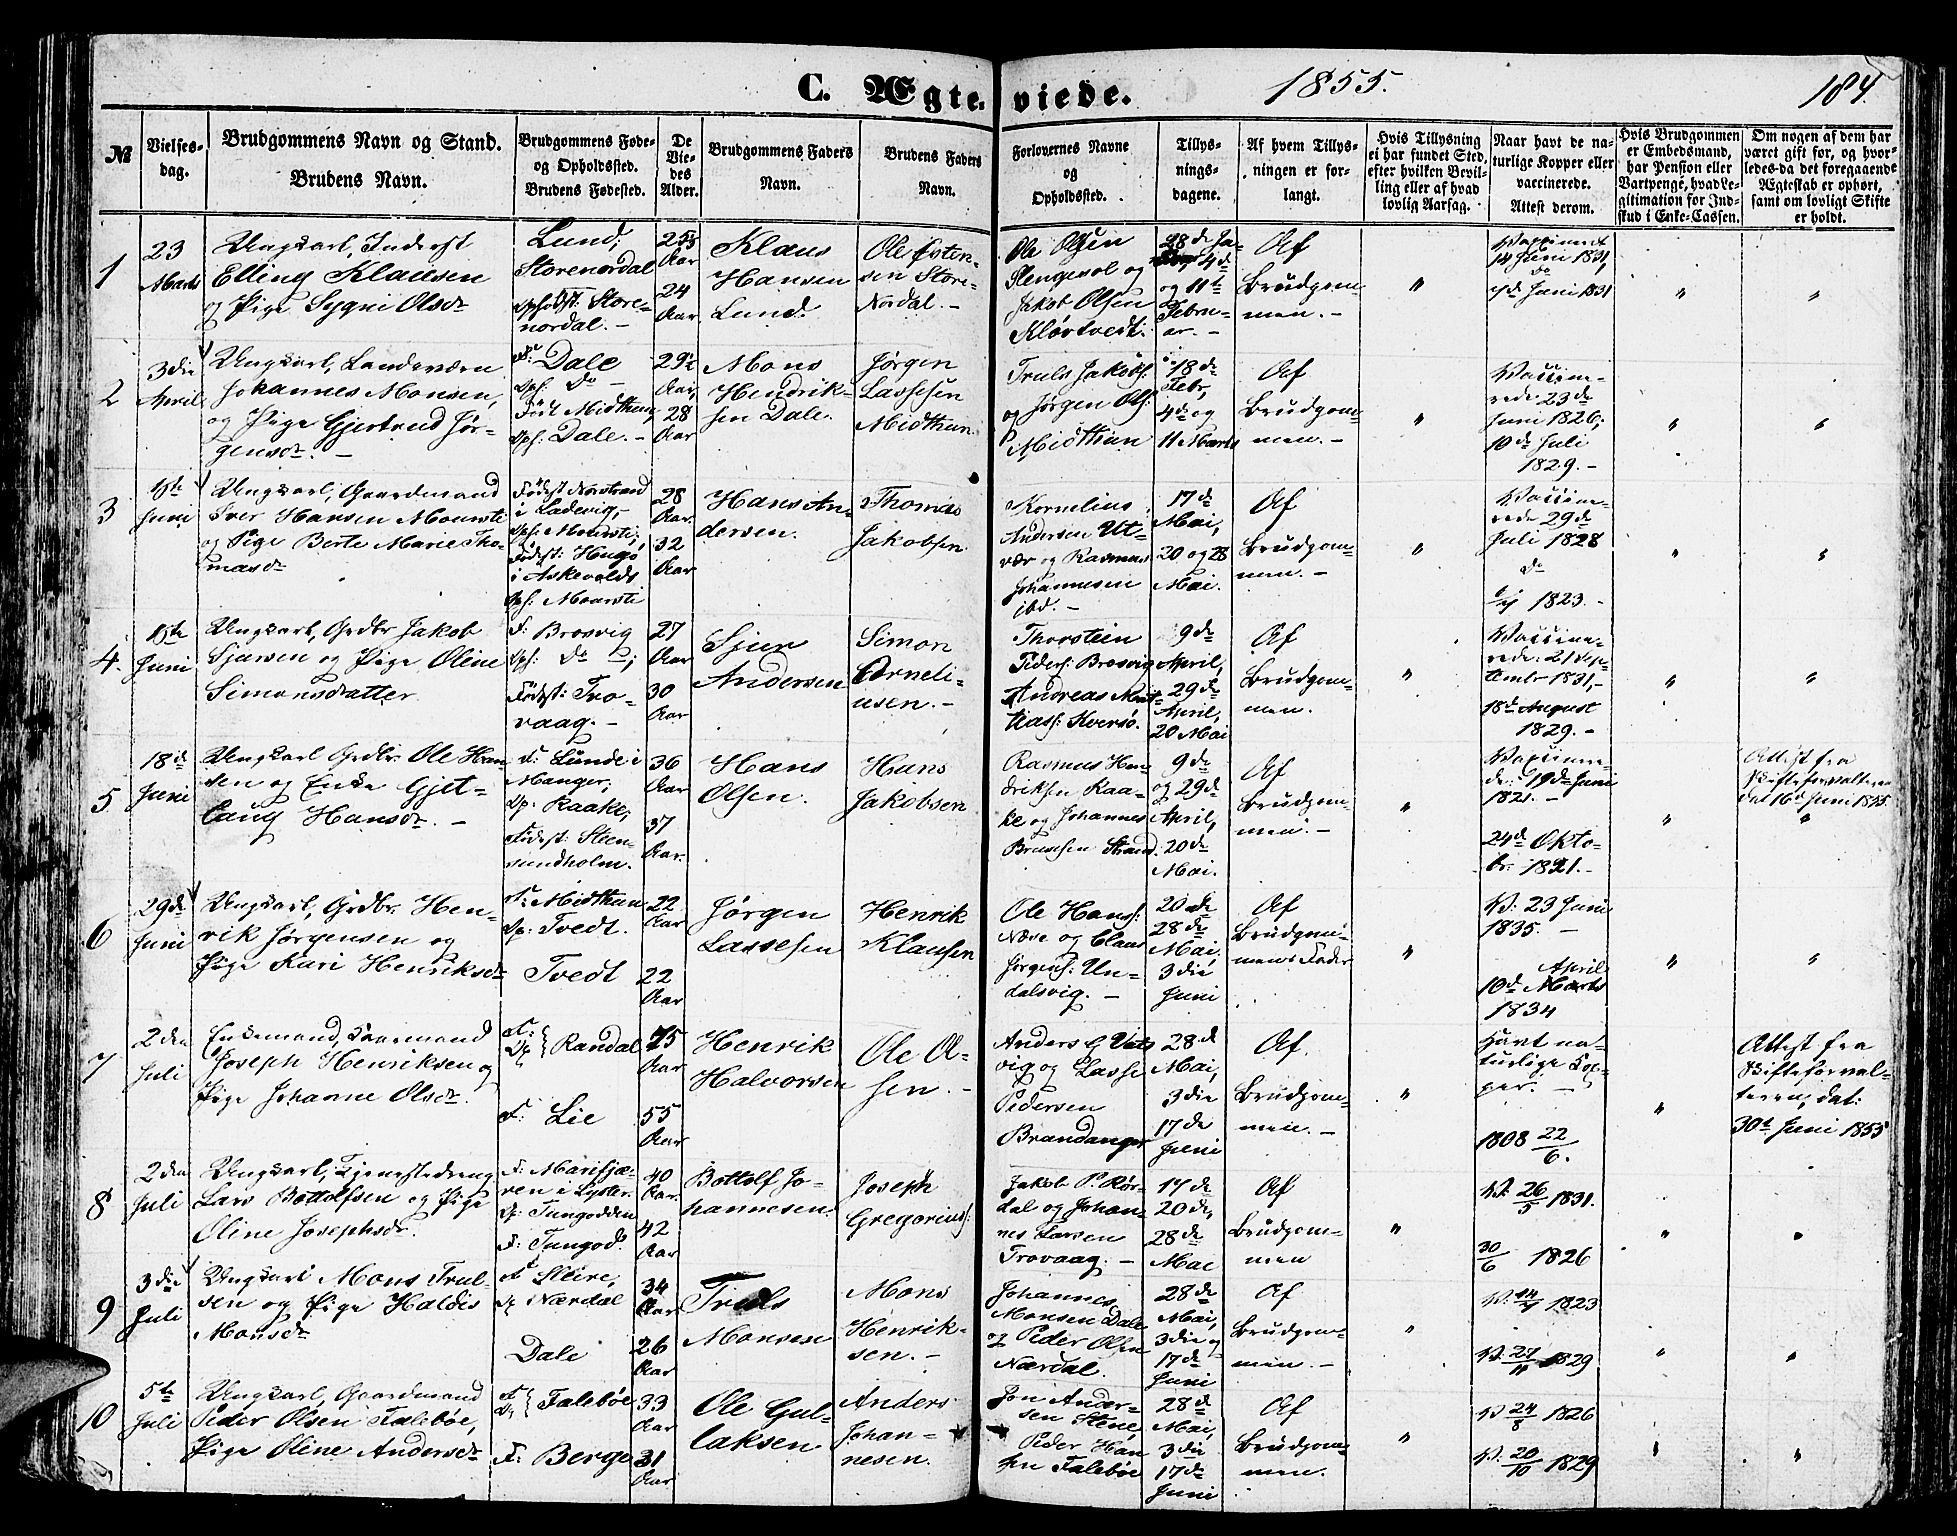 C. Ægteviede. 1855. 184.
№
Vielses-
dag.
Brudgommens Navn og Stand.
Brudens Navn.
Brudgommens Føde-
og Opholdssted.
Brudens Fødested.
De
Vie-
des
Alder.
Brudgommens Faders
Navn.
Brudens Faders
Navn.
Forlovernes Navne
og
Opholdssted.
Tillys-
nings-
dagene.
Af hvem Tillys-
ningen er for-
langt.
Hvis Tillysning
ei har fundet Sted,
efter hvilken Bevil-
ling eller af hvad
lovlig Aarsag.
Naar havt de na-
turlige Kopper eller
vaccinerede.
Attest derom.
Hvis Brudgommen
er Embedsmand,
har Pension eller
Vartpenge, hvad Le-
gitimation for Ind-
skud i Enke-Cassen.
Om nogen af dem har
været gift før, og hvor-
ledes da det foregaaende
Ægteskab er ophørt,
samt om lovligt Skifte
er holdt.
1
23
Marts
Ungkarl, Inderst
Elling Klausen
og Pige Sygni Olsdr
Lund;
Storenordal
Opholdst: Store-
nordal. -
25½
Aar
24
Aar.
Klaus
Hansen
Lund.
Ole Østen-
sen Store-
Nordal. -
Ole Olsen
Slengesol og
Jakob Olsen
Kløvtvedt.
28de Ja-
4de
og 11te
Febru-
ar. -
Af
Brudgom-
men. -
"
Vaccineret
14 Juni 1831,
do
4de Juni 1831
"
"
2
3die
April
Ungkarl, Landeværn
Johannes Monsen,
og Pige Gjertrud Jør-
gensdr. -
F: Dale
Oph. do -
Født Midthun,
Oph: Dale. -
29½
Aar,
28
Aar
Mons
Hendrik-
sen Dale.
Jørgen
Lassesen
Midthun.
Truls Jakobs:
og Jørgen Ols:
Midthun
18de
Febr,
4de og
11 Marts
Af
Brudgom-
men. -
"
Vaccine-
rede 23de
Juni 1826;
10de Juli
1829. -
"
"
3
15te
Juni
Ungkarl, Gaardmand
Iver Hansen Mourste
og Pige Berte Marie Tho-
masdr
Fødest Norstrand
i Ladevig, -
Oph: Mourste;
Fødest: Hugø
i Askevolds
Oph: Mourste
28
Aar.
32
Aar.
Hans An-
dersen.
Thomas
Jakobsen
Kornelius
Andersen Ut-
vær og Rasmus
Johannesen
ibd. -
17de
Mai,
20 og 28
Mai.
Af
Brudgom-
men. -
"
Vaccine-
rede 29de
Juli 1828
do
1823. -
"
"
4.
15te
Juni
Ungkarl, Grdbr Jakob
Sjursen og Pige Oline
Simonsdatter
F: Brosvig
Oph: do;
Fødest: Tro-
vaag. -
27
Aar
30
Aar
Sjur
Andersen
Simon
Corneli-
usen. -
Thorstein
Peders: Brosvig
Andreas Mat-
tias: Kversø.
9de
April,
29de
April,
20 Mai
Af
Brudgom-
men.
"
Vaccine-
rede: 21 Sep-
tember 1831, -
18de August
1829. -
"
"
5
18de
Juni
Ungkarl Grdbr. Ole Han-
sen og Enke Gjet-
laug Hansdr. -
F: Lunde i
Manger,
Op: Raake,
Fødest: Steen-
sundholm.
36
Aar
37
Aar.
Hans
Olsen.
Hans
Jakobsen
Rasmus Hen-
driksen Raa-
ke og Johannes
Brunsen Strand.
9de
og 29de
April,
20de
Mai.
Af
Brudgom-
men. -
"
Vaccinere-
de: 19de Juni
1821. -
24de Okto-
br: 1821. -
"
Attest fra
Skifteforvalteren
dat 16de Juni 1855.
"
6
29de
Juni
Ungkarl, Grdbr. Hen-
rik Jørgensen og
Pige Kari Henriksdr
F: Midthun
Op: Tvedt.
Tvedt
22
Aar
22
Aar
Jørgen
Lassesen
Henrik
Klausen
Ole Hans:
Næse og Claus
Jørgens: Un-
dalsvig. -
20de
28de
Mai,
3die
Juni
Af
Brudgom-
mens Fader
"
V: 23 Juni
1835. -
April
10de Marts
1834
"
"
7
2den
Juli
Enkemand, Kaarmand
Joseph Henriksen og
Pige Johanne Olsdr.
F:
Op } Randal
F: Lie
75
Aar
55
Aar
Henrik
Halvorsen
Ole Ol-
sen. -
Anders
vig og Lasse
Pedersen
Brandanger
28de
Mai,
3die
17de
Juni
Af
Brudgom-
men. -
"
Havt na-
turlige Kop-
per. -
1808 22/6.
"
Attest fra
Skifteforval-
teren, dat:
30te Juni 1855
8
2den
Juli
Ungkarl, Tjenestedreng
Lars Bottolfsen og Pige
Oline Josephsdr.
F: Marifjæ-
ren i Lyster.
Op: Tungodden
F: Tungod.
40
Aar.
42
Aar
Bottolf Jo-
hannesen.
Joseph
Gregorius:
Jakob P. Rør-
dal og Johan-
nes Larsen
Trovaag. -
17de
20de,
28de
Mai
Af
Brudgom-
men
"
V: 26/5 1831.
30/6 1826
"
"
9
3die
Juli
Ungkarl Mons Trul-
sen og Pige Haldis
Monsdr
F: Steire,
Op Nærdal
Dale
34
Aar
26
Aar
Truls
Monsen
Mons
Henrik-
sen. -
Johannes
Monsen Dale
og Peder Olsen
Nærdal.
28de
Mai,
3die og
17de
Juni
Af
Brudgom-
men. -
"
1823
1829
"
"
10
5te
Juli
Ungkarl, Gaardmand
Peder Olsen Falebøe,
Pige Oline Andersdr
F
Op } Falebøe
F: Berge
33
Aar
31
Aar
Ole Gul-
laksen
Anders
Johan-
nesen.
Jon Ander-
sen Stene,
Peder Han-
sen Falebøe
28de
Mai,
3die
17de
Juni
Af
Brudgom-
men.
"
V: 24/8 1826
V: 20/10 1829
"
"